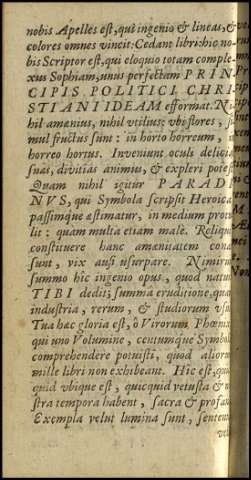 nobis Apelles est, qui ingenio & lineas, &
colores omnes vincit: Cedant libri: hic no-
bis Scriptor est, qui eloquio totam comple-
xus Sophiam, unus perfectam PRIN
CIPIS POLITICI CHRI
STIANI IDEAM efformat. Ni
hil amœnius, nihil vtilius: vbi flores, si
mul fructus sunt: in horto horreum, in
horreo hortus. Inveniunt oculi delicia
suas, divitias animus, & expleri potest
Quam nihil igitur PARADI
NVS, qui Symbola scripsit Heroica
passimque æstimatur, in medium protu
lit: quam multa etiam malè. Reliqui
constituere hanc amænitatem cona
sunt, vix ausi usurpare. Nimirum
summo hic ingenio opus, quod natu
TIBI dedit; summa eruditione, qua
industria, rerum, & studiorum vsu
Tua hæc gloria est, ô Virorum Phœnix
qui uno Volumine, centumque Symbol
comprehendere potuisti, quod aliorum
mille libri non exhibeant. Hic est, qui
quid vbique est, quicquid vetusta & no
stra tempora habent, sacra & profan
Exempla velut lumina sunt, senten